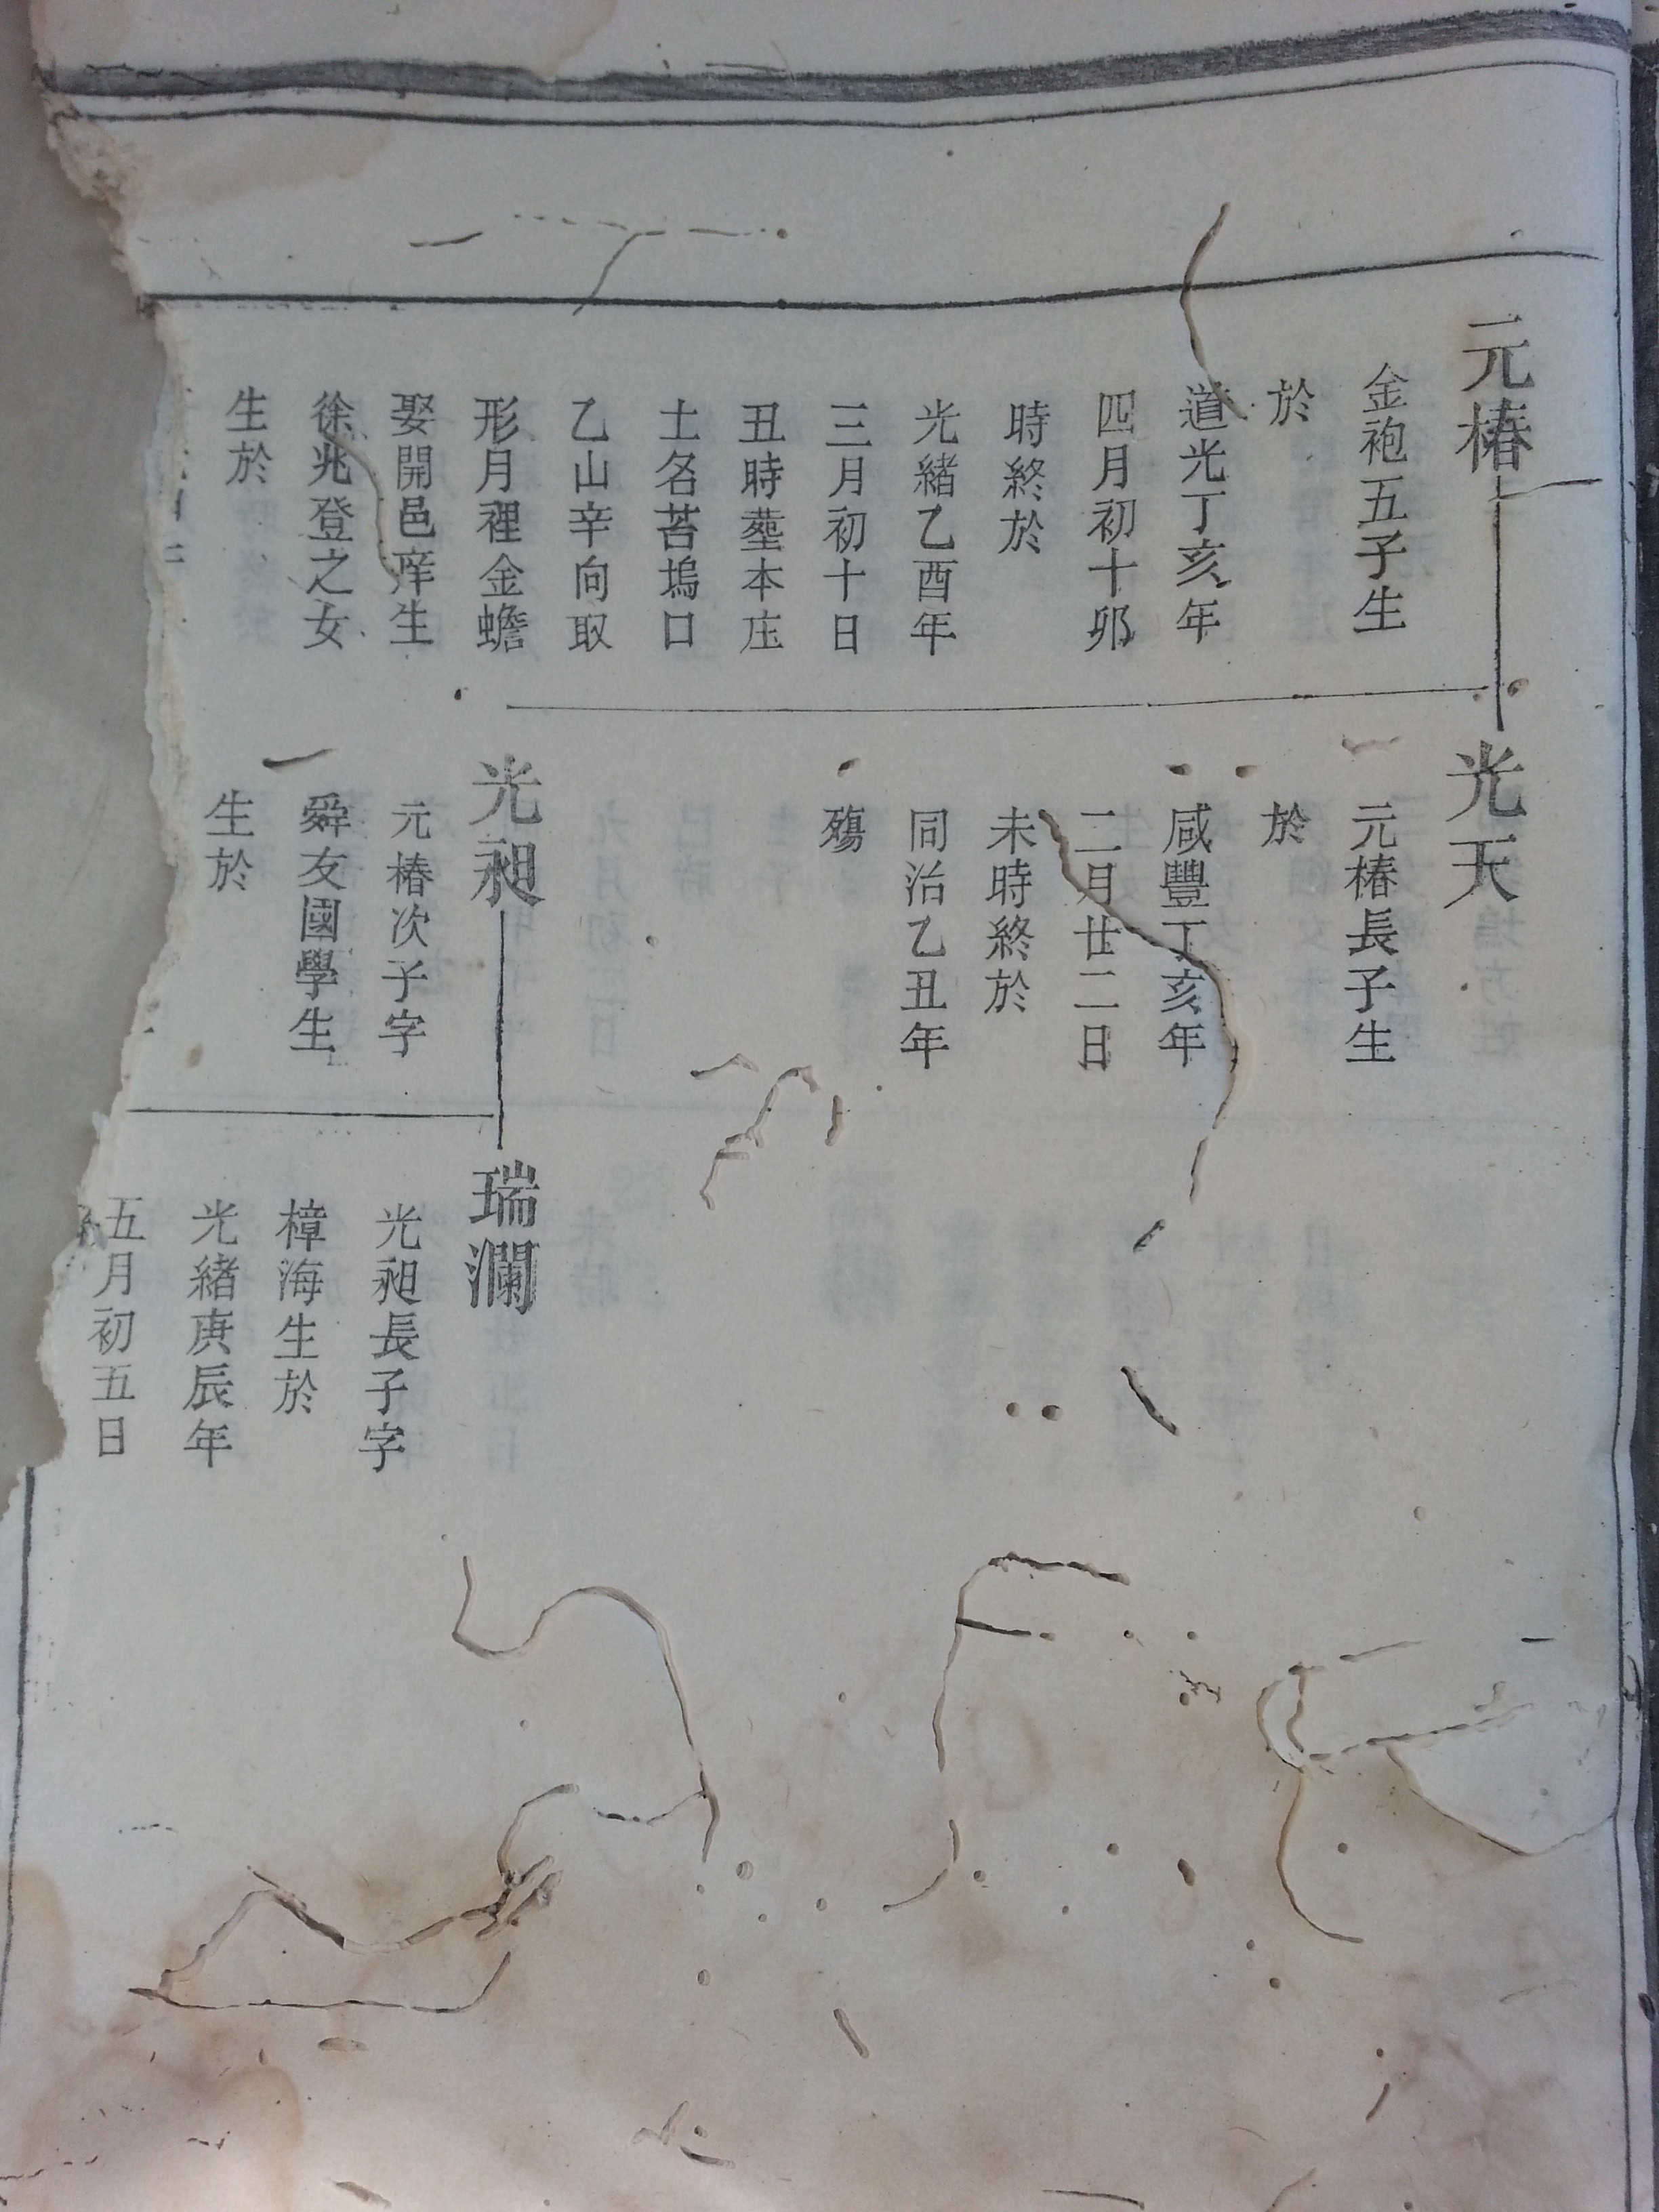 元椿
金袍五子生
於
道光丁亥年
四月初十卯
時終於
光緒乙酉年
三月初十日
丑時塟本庄
土名苔塢口
乙山辛向取
形月裡金蟾
娶開邑庠生
徐兆登之女
生於
光天
元椿長子生
於
咸豐丁亥年
二月廿二日
未時終於
同治乙丑年
殤
光昶
元椿次子字
舜友國學生
生於
瑞瀾
光昶長子字
樟海生於
光緒庚辰年
五月初五日